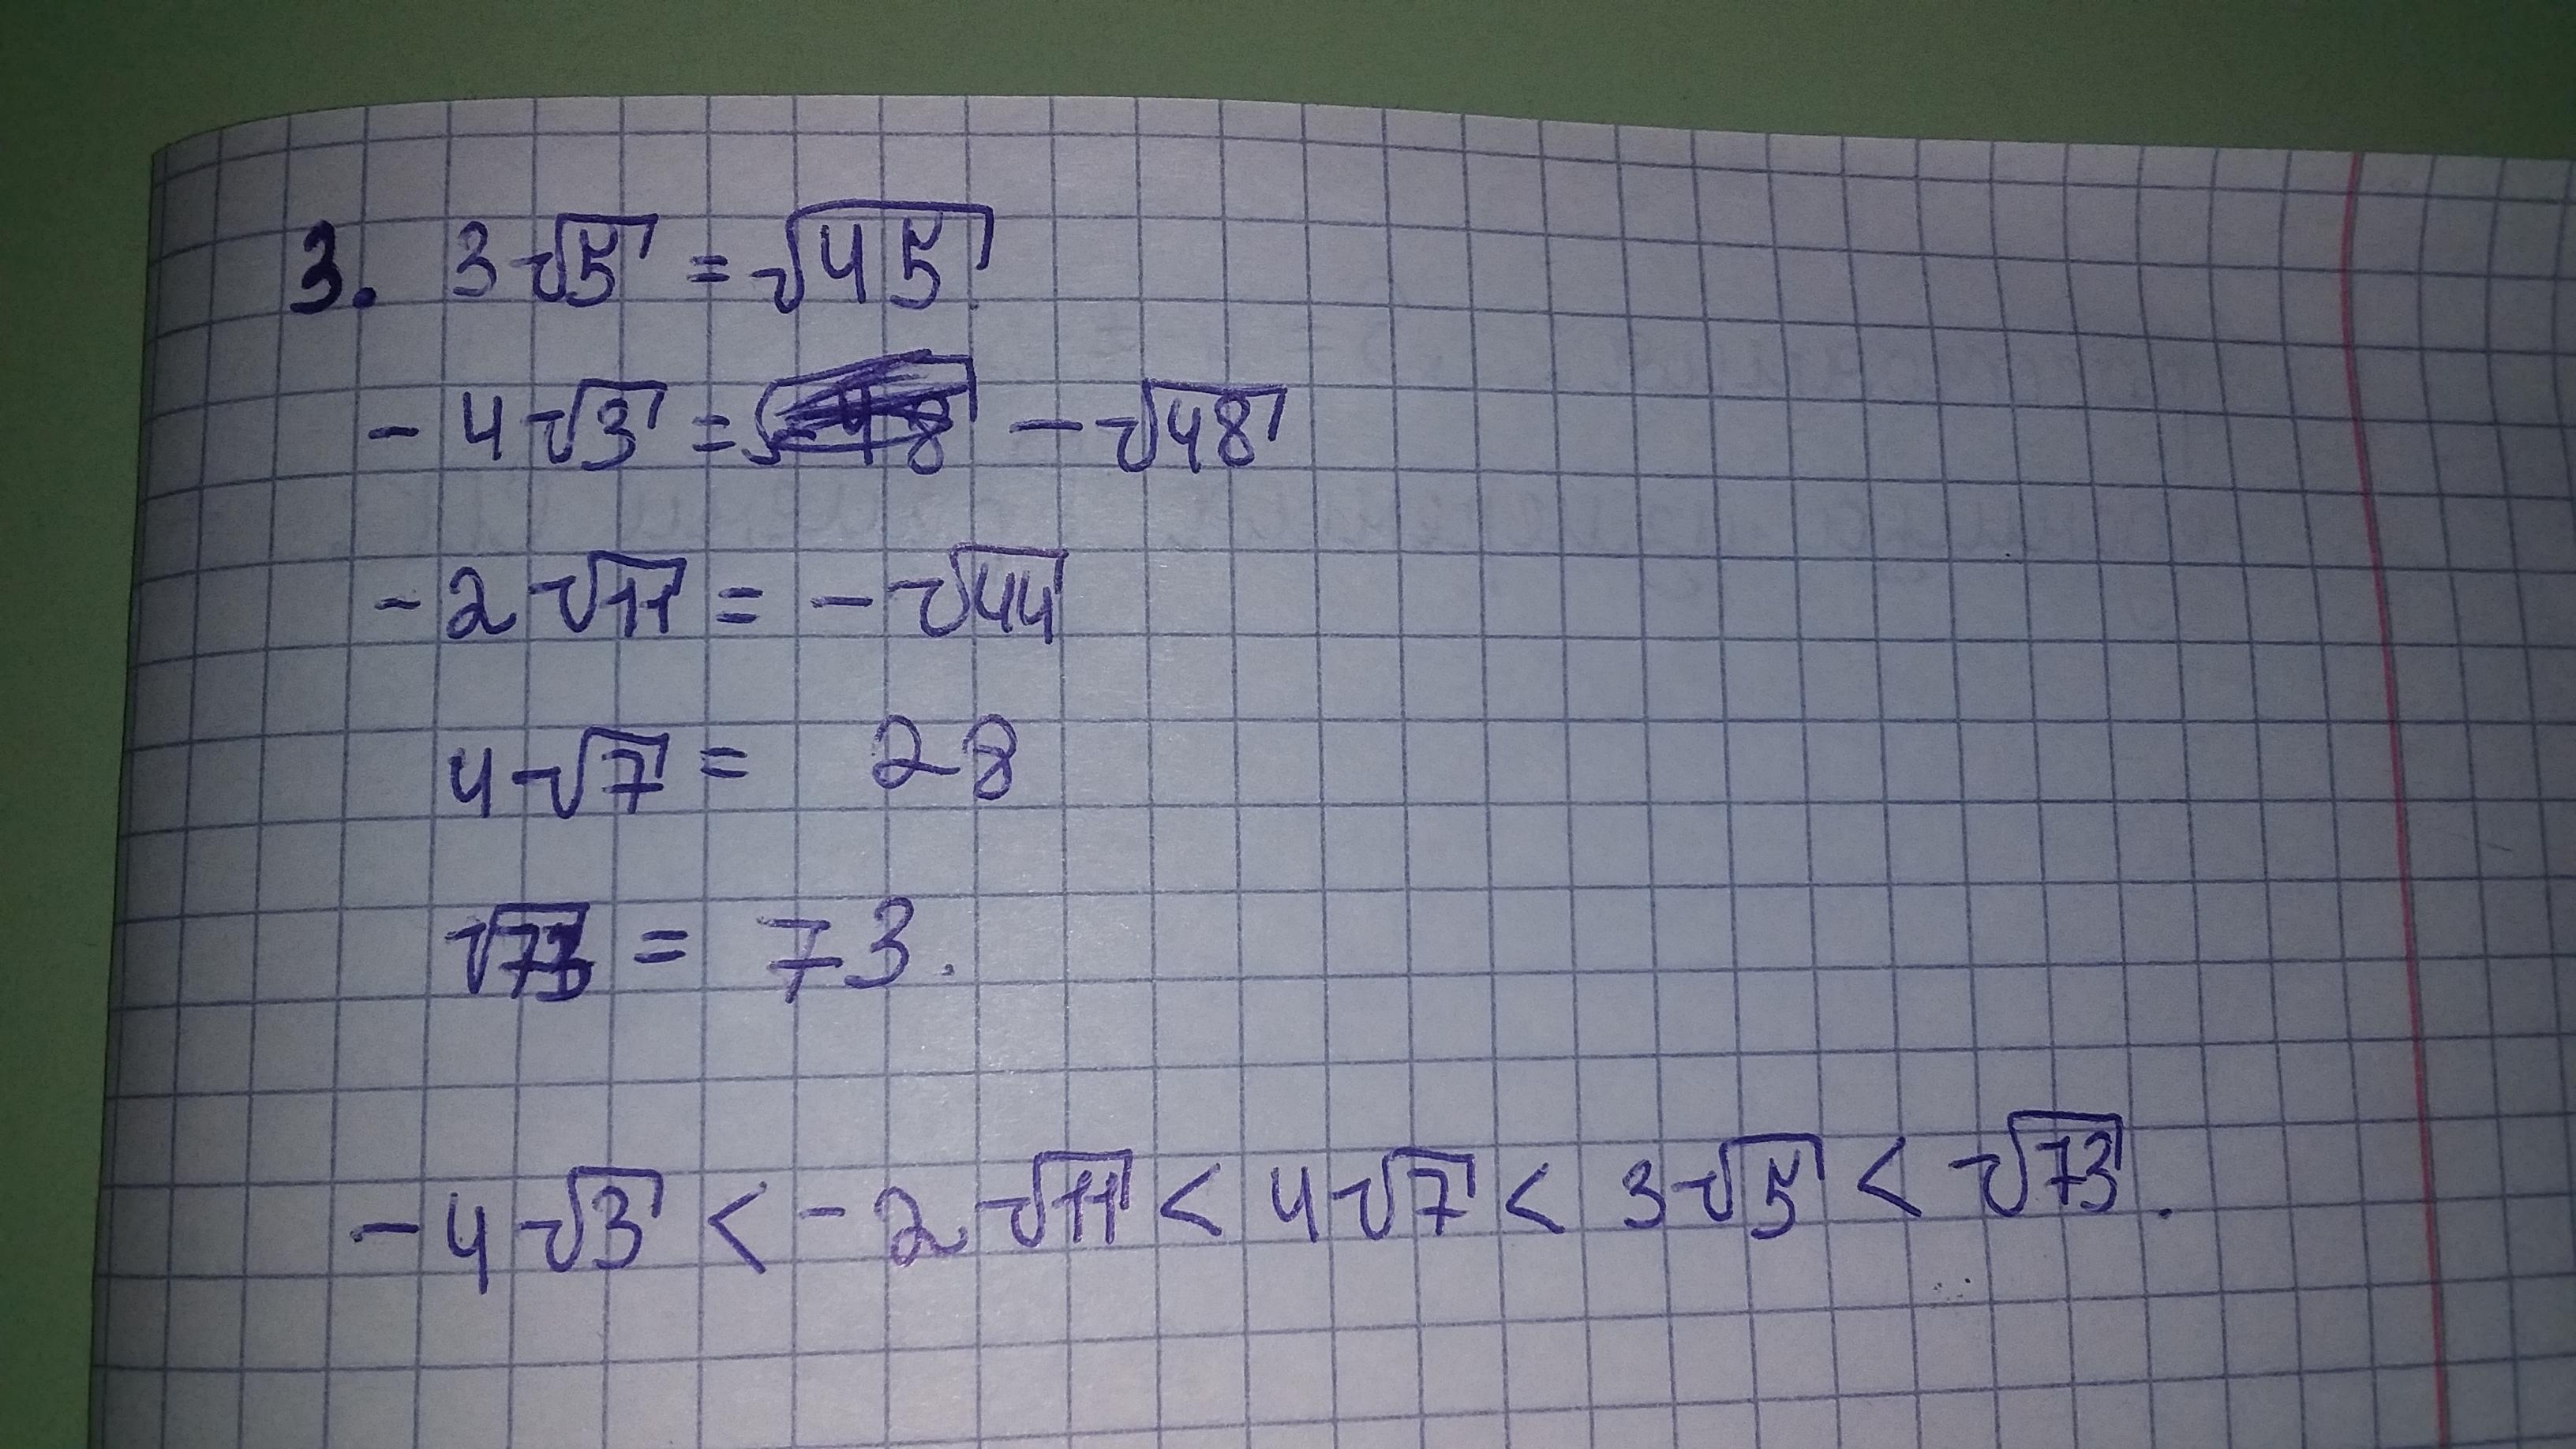 3. 3√5 = √45
-4√3 = -√48
-2√11 = -√44
4√7 = 28
√73 = 73.
-4√3 < -2√11 < 4√7 < 3√5 < √73.